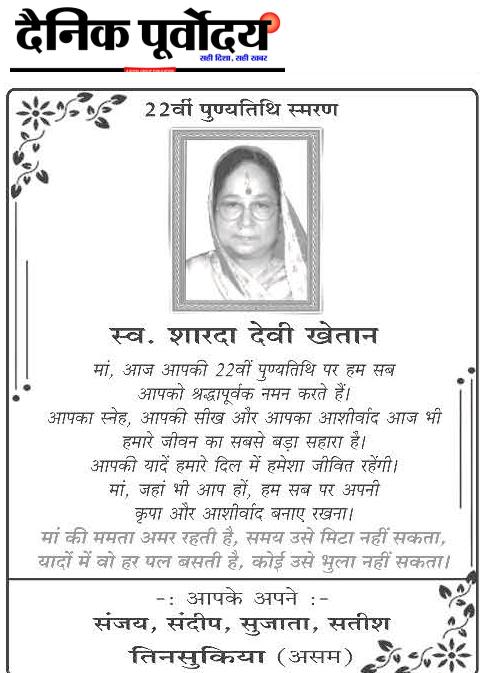 दैनिक पूर्वोदय
सही दिशा, सही खबर
22वीं पुण्यतिथि स्मरण
स्व. शारदा देवी खेतान
मां, आज आपकी 22वीं पुण्यतिथि पर हम सब
आपको श्रद्धापूर्वक नमन करते हैं।
आपका स्नेह, आपकी सीख और आपका आशीर्वाद आज भी
हमारे जीवन का सबसे बड़ा सहारा है।
आपकी यादें हमारे दिल में हमेशा जीवित रहेंगी।
मां, जहां भी आप हों, हम सब पर अपनी
कृपा और आशीर्वाद बनाए रखना।
मां की ममता अमर रहती है, समय उसे मिटा नहीं सकता,
यादों में वो हर पल बसती है, कोई उसे भुला नहीं सकता।
-: आपके अपने :-
संजय, संदीप, सुजाता, सतीश
तिनसुकिया (असम)